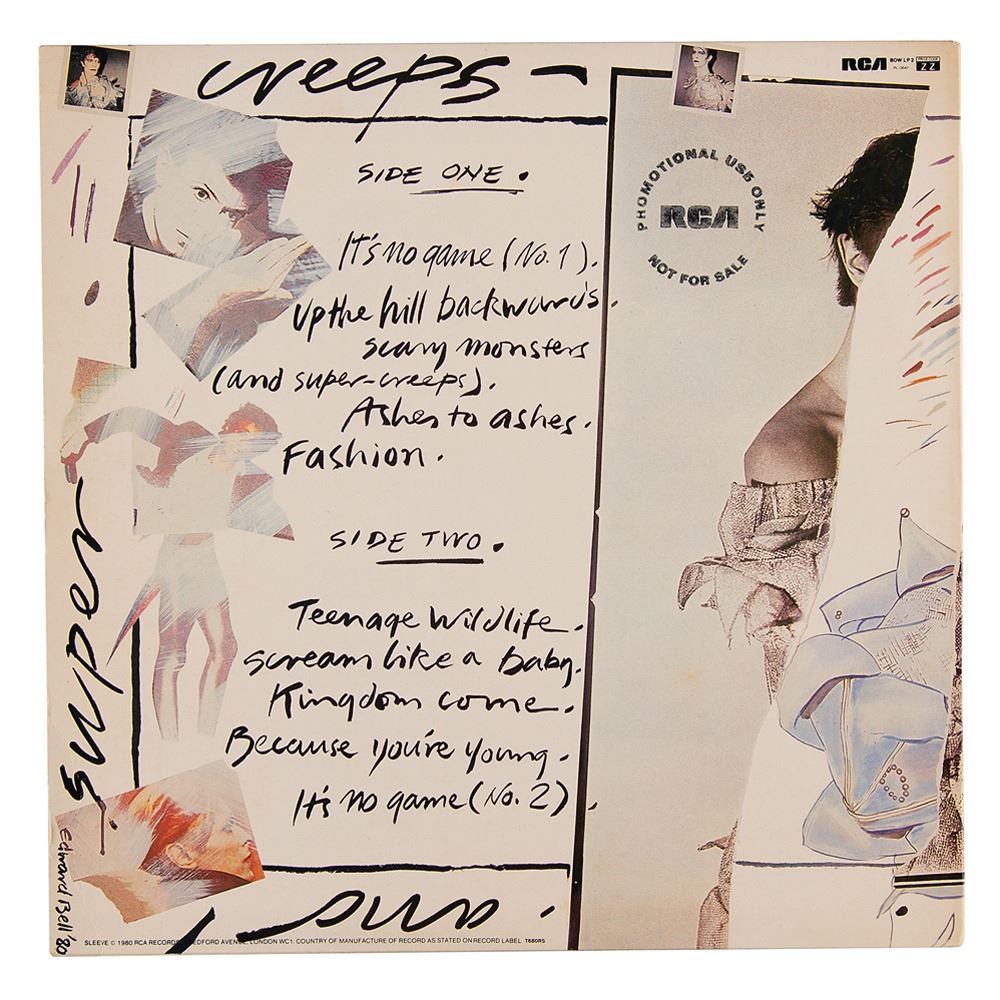 creeps -
RCA BOW LP 2
PL 13647
ZZ
PROMOTIONAL USE ONLY
RCA
NOT FOR SALE
SIDE ONE.
It's no game (No. 1).
Up the hill backwards.
scary monsters
(and super-creeps).
Ashes to ashes.
Fashion.
SIDE TWO.
Teenage Wildlife.
scream like a baby.
Kingdom come.
Because you're young.
It's no game (No. 2).
super
Edward Bell '80
SLEEVE © 1980 RCA RECORDS, BEDFORD AVENUE, LONDON WC1. COUNTRY OF MANUFACTURE OF RECORD AS STATED ON RECORD LABEL T680RS